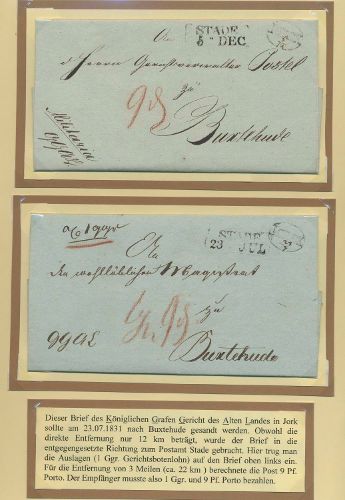 An
STADE
5 DEC
d Herrn Gerichtsverwalter Postel
zu
Buxtehude
STADE
23 JUL
An
den wohllöblichen Magistrat
zu
Buxtehude
Dieser Brief des Königlichen Grafen Gericht des Alten Landes in Jork
sollte am 23.07.1831 nach Buxtehude gesandt werden. Obwohl die
direkte Entfernung nur 12 km beträgt, wurde der Brief in die
entgegengesetzte Richtung zum Postamt Stade gebracht. Hier trug man
die Auslagen (1 Ggr. Gerichtsbotenlohn) auf den Brief oben links ein.
Für die Entfernung von 3 Meilen (ca. 22 km ) berechnete die Post 9 Pf.
Porto. Der Empfänger musste also 1 Ggr. und 9 Pf. Porto bezahlen.